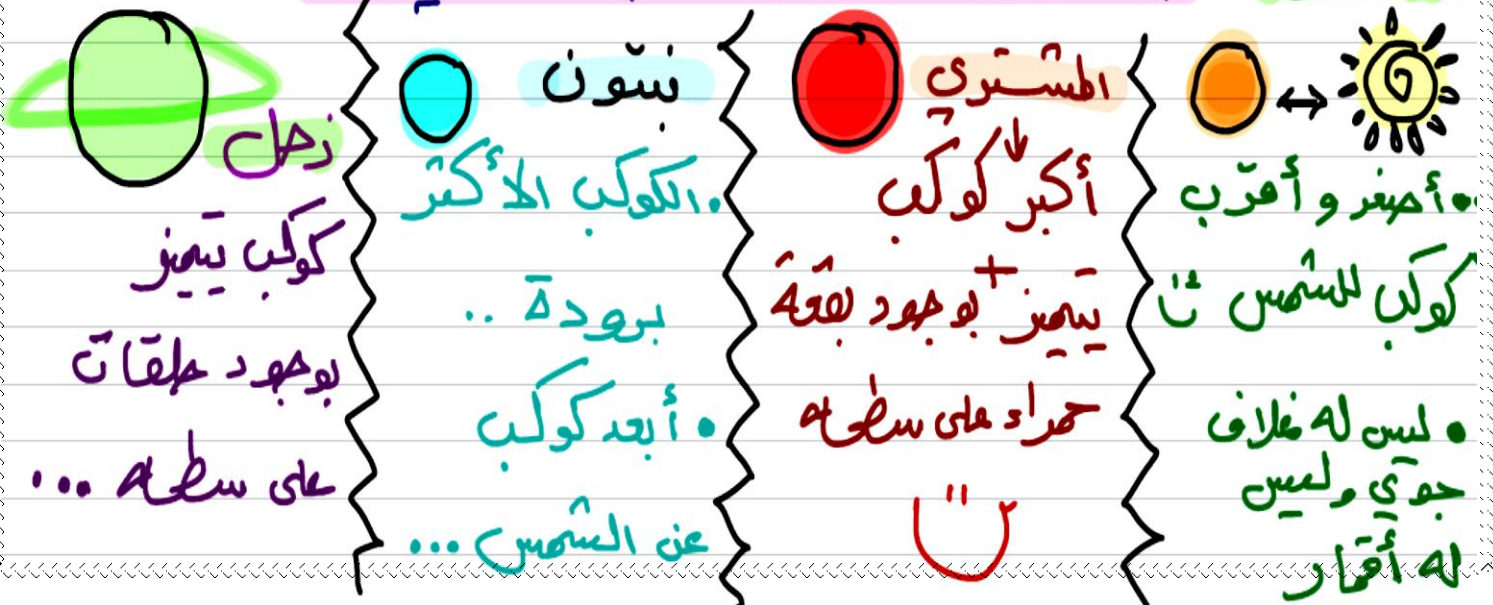 • أصغر و أقرب
كوكب للشمس
• ليس له غلاف
جوي وليس
له أقمار
المشتري
أكبر كوكب
+
يتميز بوجود بقعة
حمراء على سطحه
نبتون
• الكوكب الأكثر
برودة ..
• أبعد كوكب
عن الشمس ...
زحل
كوكب يتميز
بوجود حلقات
على سطحه ...